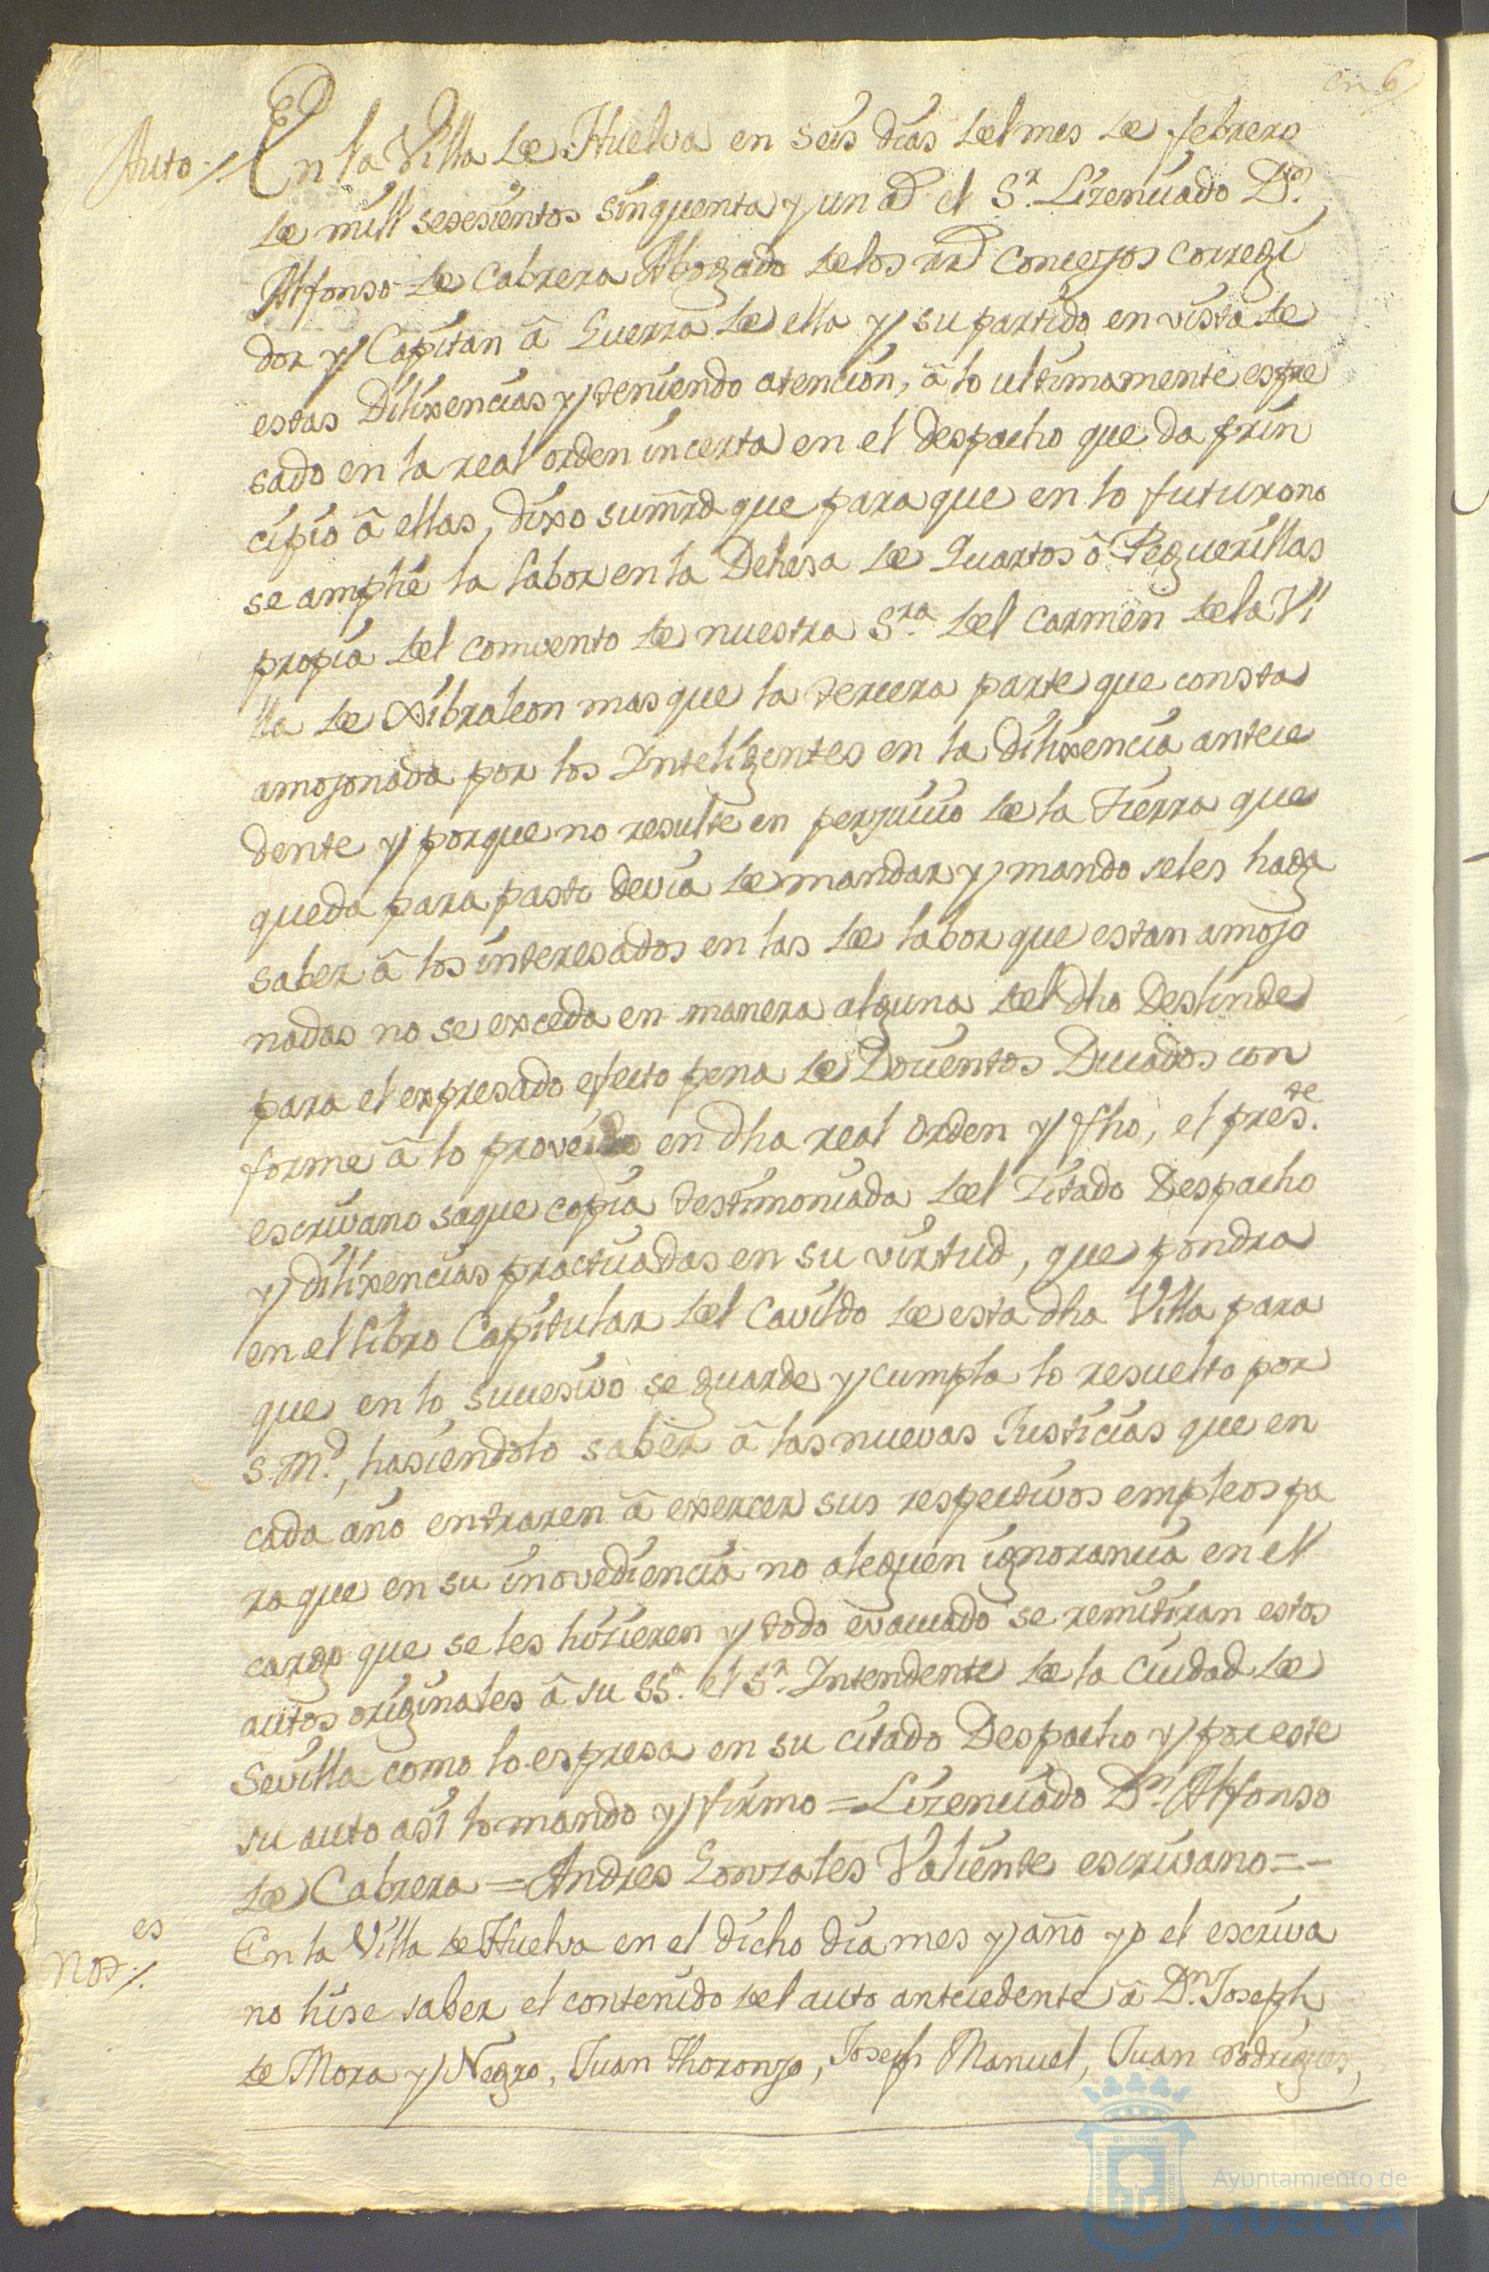 Auto //. En la Villa de Huelva en seis dias del mes de febrero
de mill setesientos sinquenta y un ad. el Sr. Lizenciado Dn.
Alfonso de Cabrera Abogado de los rrs. Concejos corregi
dor y Capitan â Guerra de ella y su partido en vista de
estas Dilixencias y teniendo atencion, â lo ultimamente espre
sado en la real orden incerta en el despacho que da prin
cipio â ellas, dixo su mrd que para que en lo futuro no
se amplie la labor en la Dehesa de Quartos ô Peguerillas
propia del comvento de nuestra Sra. del Carmen de la Vi
lla de Xibraleon mas que la tercera parte que consta
amojonada por los Inteligentes en la dilixencia antece
dente y porque no resulte en perjuicio de la tierra que
queda para pasto devia de mandar y mando se les haga
saber â los interesados en las de labor que estan amojo
nadas no se exceda en manera alguna del dho Deslinde
para el expresado efecto pena de Docientos Ducados con
forme â lo proveido en dha real orden y fho, el preste.
escrivano saque copia testimoniada del Zitado Despacho
y dilixencias practicadas en su virtud, que pondra
en el libro Capitular del Cavildo de esta dha Villa para
que en lo sucesivo se guarde y cumpla lo resuelto por
S. Md., hasiendolo saber â las nuevas Justicias que en
cada año entraren â exercer sus respectivos empleos pa
ra que en su inovediencia no aleguen ignorancia en el
cargo que se les hizieren y todo evacuado se remitiran estos
autos originales â su SSa. el Sr. Intendente de la Ciudad de
Sevilla como lo espresa en su citado Despacho y por este
su auto asi lo mando y firmo = Lizenciado Dn. Alfonso
de Cabrera = Andres Gonzales Valiente escrivano = -
Notes //. En la Villa de Huelva en el dicho dia mes y año yo el escriva
no hise saber el contenido del auto antecedente â Dn. Joseph
de Mora y Negro, Juan Thoronjo, Joseph Manuel, Juan Rodrigues,
Ayuntamiento de
HUELVA